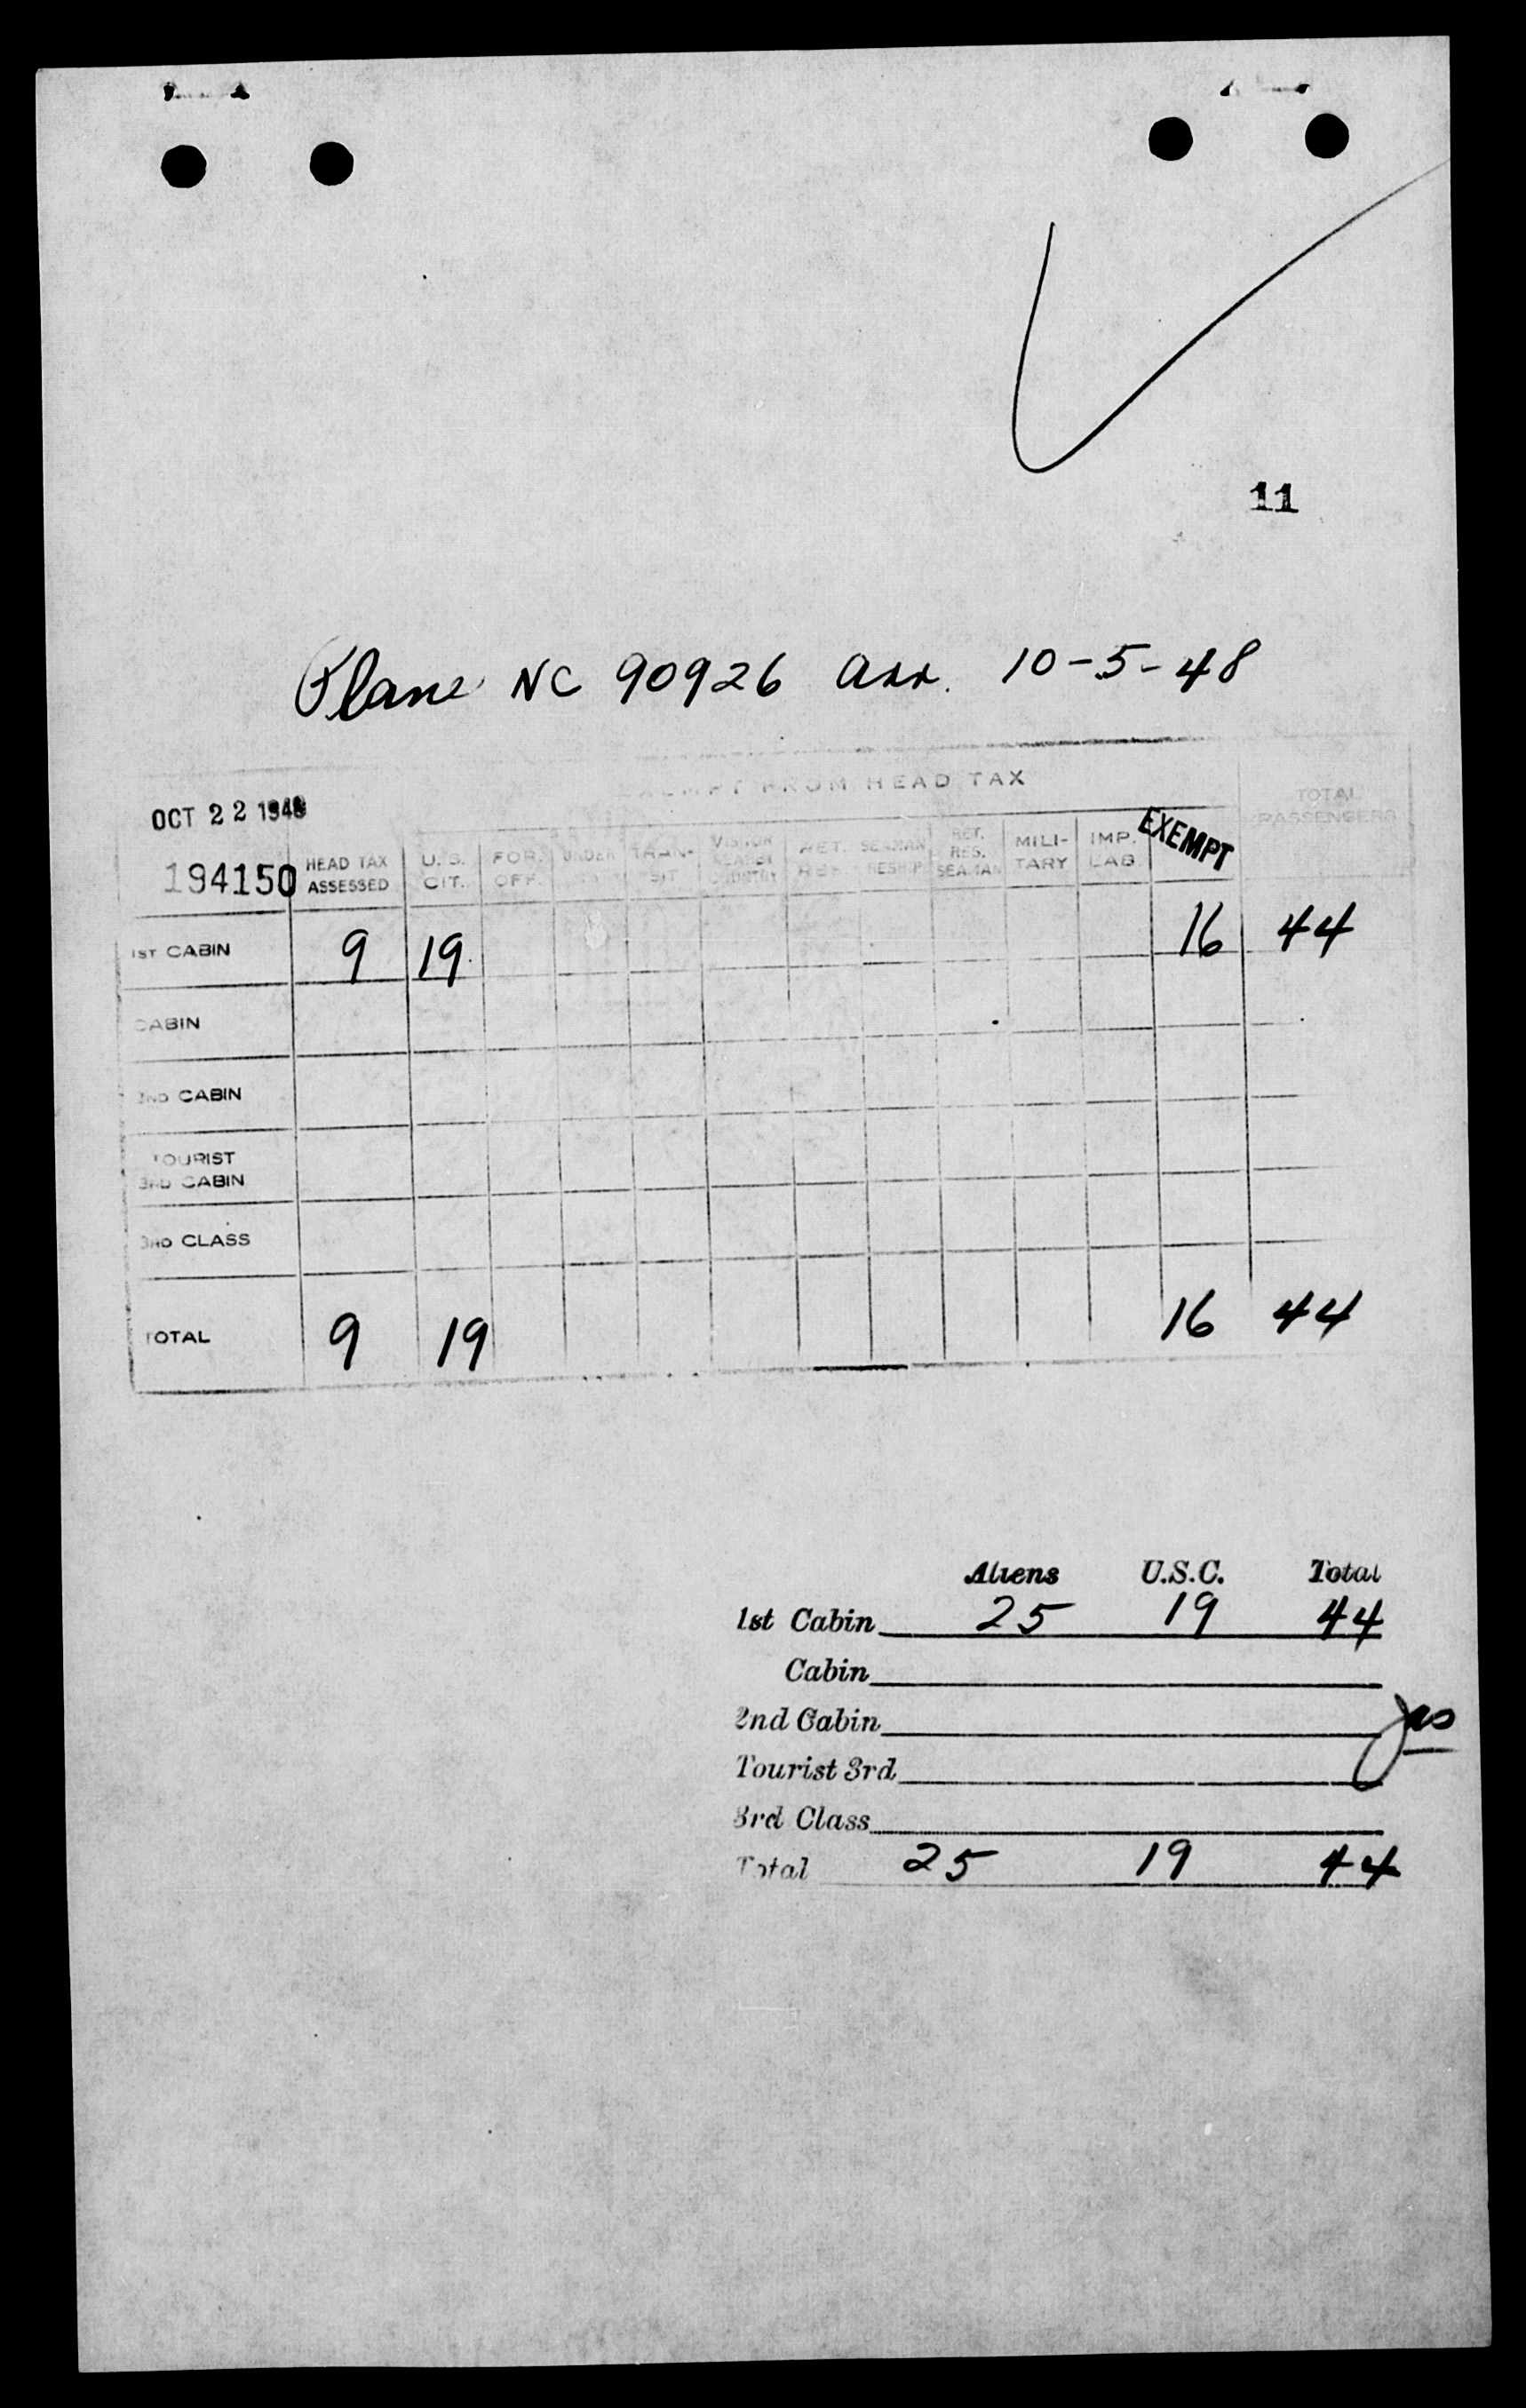 11
Plane NC 90926 arr. 10-5-48
FROM HEAD TAX
OCT 22 1948
TOTAL PASSENGERS
194150 HEAD TAX ASSESSED U.S. CIT. FOR. OFF. UNDER TRAN-SIT VISITOR COUNTRY RET. SEAMAN RESHIP RET. RES. SEAMAN MILI-TARY IMP. LAB EXEMPT
1ST CABIN 9 19 16 44
CABIN
2ND CABIN
TOURIST
3RD CABIN
3RD CLASS
TOTAL 9 19 16 44
Aliens U.S.C. Total
1st Cabin 25 19 44
Cabin
2nd Cabin
Tourist 3rd
3rd Class
Total 25 19 44